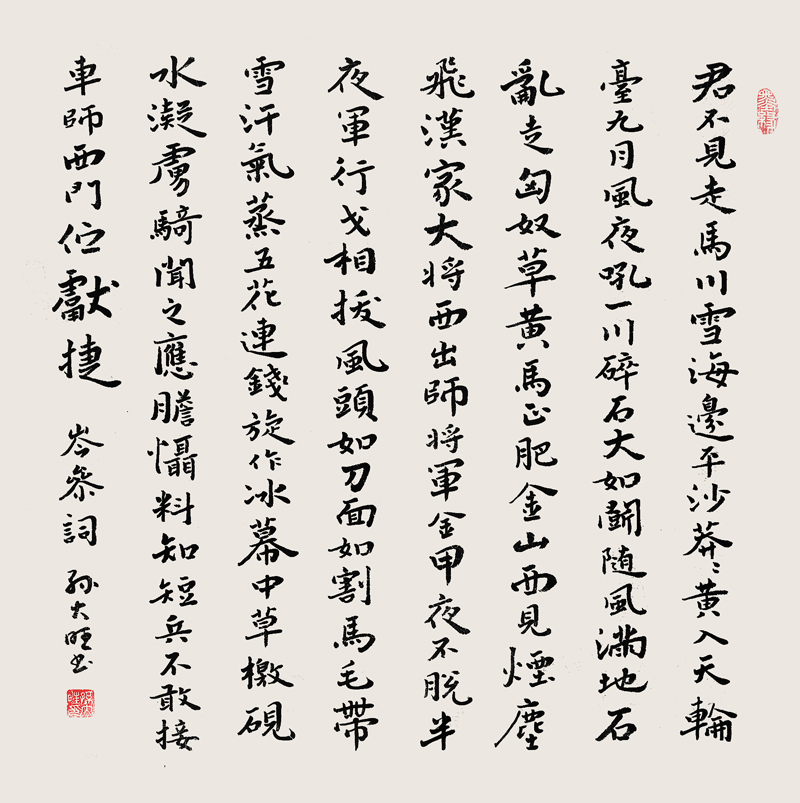 君不見走馬川雪海邊平沙莽〻黃入天輪
臺九月風夜吼一川碎石大如鬭随風滿地石
亂走匈奴草黃馬正肥金山西見煙塵
飛漢家大将西出師将軍金甲夜不脱半
夜軍行戈相拨風頭如刀面如割馬毛帶
雪汗氣蒸五花連錢旋作冰幕中草檄硯
水凝虜騎聞之應膽懾料知短兵不敢接
車師西門伫獻捷 岑參詞 孫大旺书